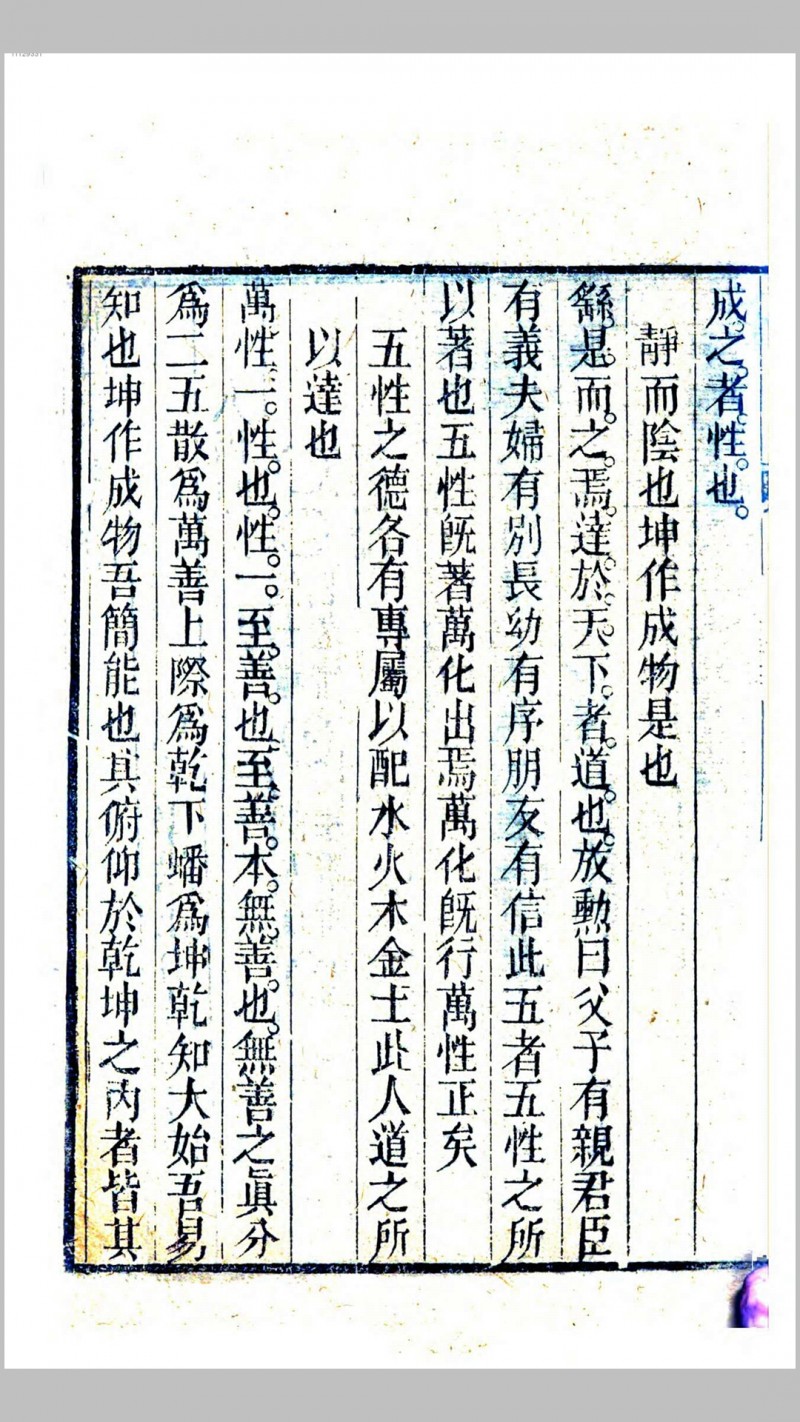 成。之。者。性。也。
靜而陰也坤作成物是也
繇。是。而。之。焉。達。於。天。下。者。道。也。放勳曰父子有親君臣
有義夫婦有別長幼有序朋友有信此五者五性之所
以著也五性旣著萬化出焉萬化旣行萬性正矣
五性之德各有專屬以配水火木金土此人道之所
以達也
萬。性。一。性。也。性。一。至。善。也。至。善。本。無。善。也。無善之眞分
爲二五散爲萬善上際爲乾下蟠爲坤乾知大始吾易
知也坤作成物吾簡能也其俯仰於乾坤之內者皆其